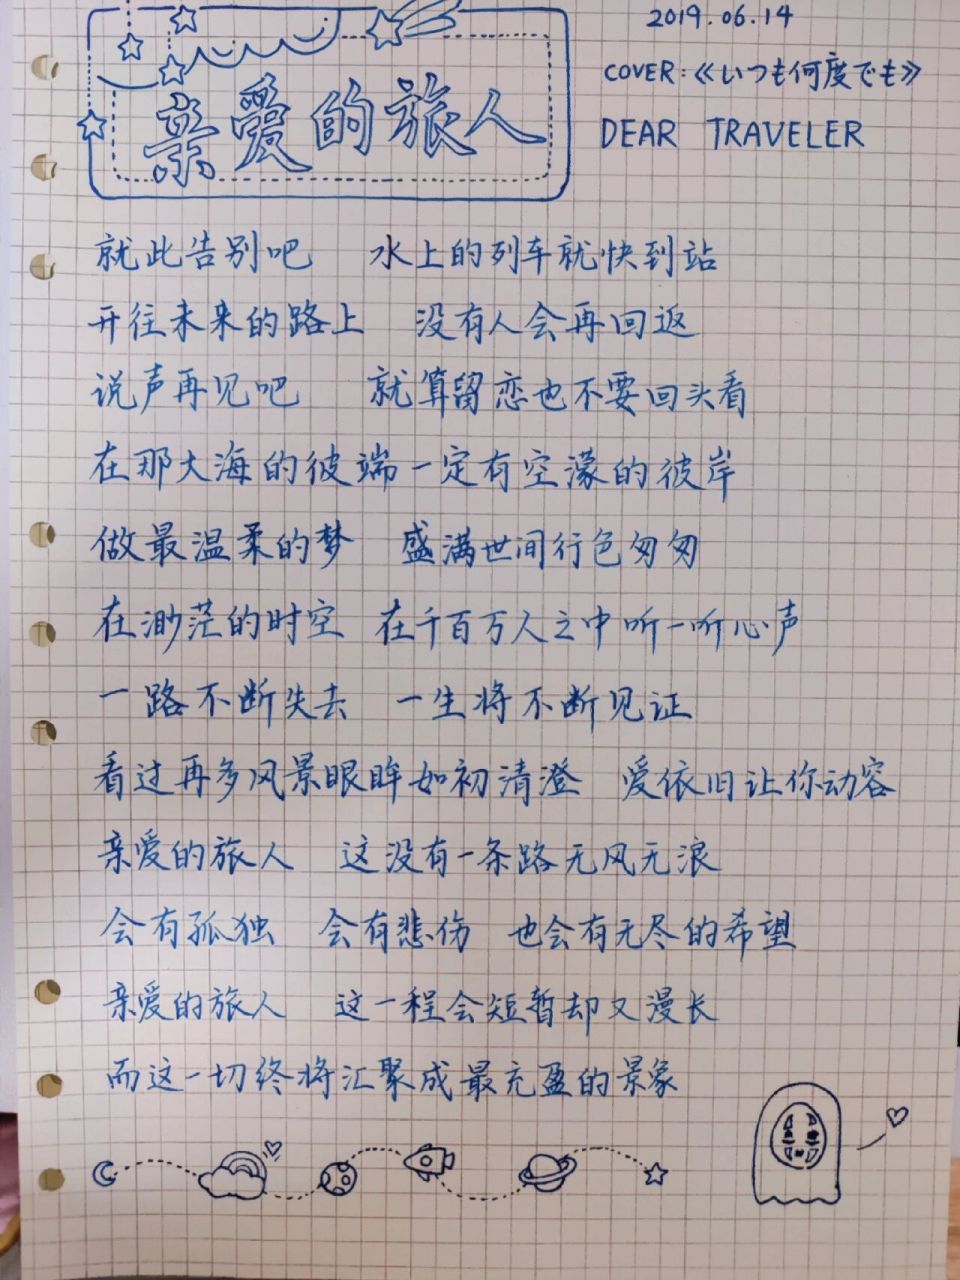 亲爱的旅人
2019.06.14
COVER:《いつも何度でも》
DEAR TRAVELER
就此告别吧 水上的列车就快到站
开往未来的路上 没有人会再回返
说声再见吧 就算留恋也不要回头看
在那大海的彼端一定有空濛的彼岸
做最温柔的梦 盛满世间行色匆匆
在渺茫的时空 在千百万人之中听一听心声
一路不断失去 一生将不断见证
看过再多风景眼眸如初清澄 爱依旧让你动容
亲爱的旅人 这没有一条路无风无浪
会有孤独 会有悲伤 也会有无尽的希望
亲爱的旅人 这一程会短暂却又漫长
而这一切终将汇聚成最充盈的景象